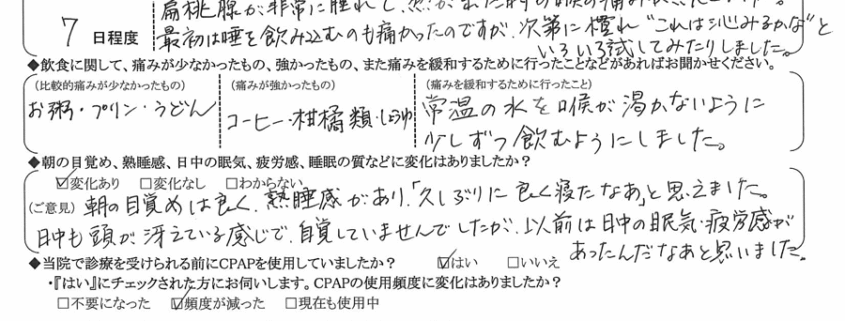 扁桃腺が非常に腫れ
7 日程度
最初は唾を飲み込むのも痛かったのですが、次第に慣れ"これは沁みるかな"と
いろいろ試してみたりしました。
◆飲食に関して、痛みが少なかったもの、強かったもの、また痛みを緩和するために行ったことなどがあればお聞かせください。
(比較的痛みが少なかったもの) (痛みが強かったもの) (痛みを緩和するために行ったこと)
お粥・プリン・うどん
コーヒー・柑橘類・しょうゆ
常温の水を喉が渇かないように
少しずつ飲むようにしました。
◆朝の目覚め、熟睡感、日中の眠気、疲労感、睡眠の質などに変化はありましたか?
☑変化あり □変化なし □わからない
(ご意見) 朝の目覚めは良く、熟睡感があり、「久しぶりに良く寝たなあ」と思えました。
日中も頭が冴えている感じで、自覚していませんでしたが、以前は日中の眠気・疲労感が
あったんだなあと思いました。
◆当院で診療を受けられる前にCPAPを使用していましたか? ☑はい □いいえ
・『はい』にチェックされた方にお伺いします。CPAPの使用頻度に変化はありましたか?
□不要になった ☑頻度が減った □現在も使用中